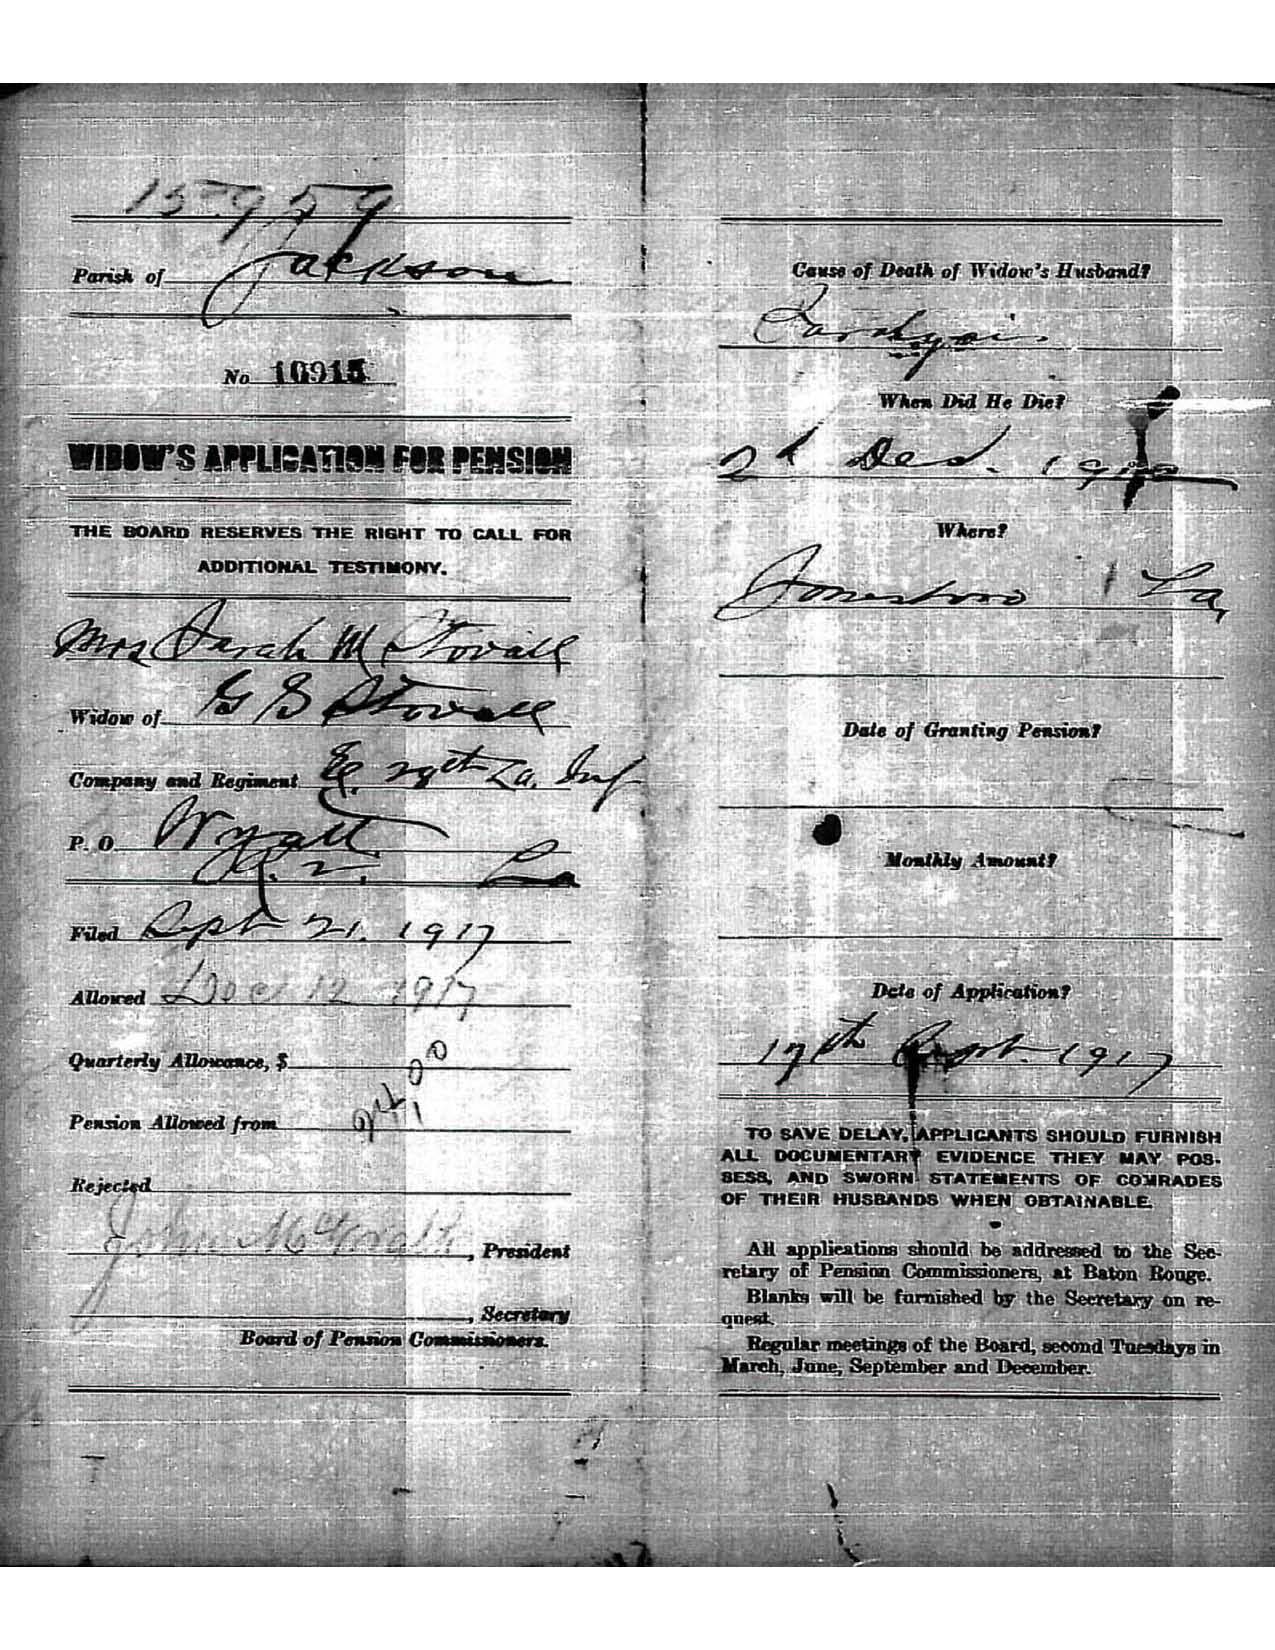 15959
Parish of Jackson
No 10915
WIDOW'S APPLICATION FOR PENSION
THE BOARD RESERVES THE RIGHT TO CALL FOR
ADDITIONAL TESTIMONY.
Mrs Sarah M Stovall
Widow of G S Stovall
Company and Regiment 28th La. Inf
P. O. Wyatt
La
Filed Sept 21. 1917
Allowed Dec 12 1917
Quarterly Allowance, $
Pension Allowed from
Rejected
John McGrath, President
, Secretary
Board of Pension Commissioners.
Cause of Death of Widow's Husband?
When Did He Die?
Dec.
Where?
Jonesboro La,
Date of Granting Pension?
Monthly Amount?
Date of Application?
17th Sept. 1917
TO SAVE DELAY, APPLICANTS SHOULD FURNISH
ALL DOCUMENTARY EVIDENCE THEY MAY POS-
SESS, AND SWORN STATEMENTS OF COMRADES
OF THEIR HUSBANDS WHEN OBTAINABLE.
All applications should be addressed to the Sec-
retary of Pension Commissioners, at Baton Rouge.
Blanks will be furnished by the Secretary on re-
quest.
Regular meetings of the Board, second Tuesdays in
March, June, September and December.